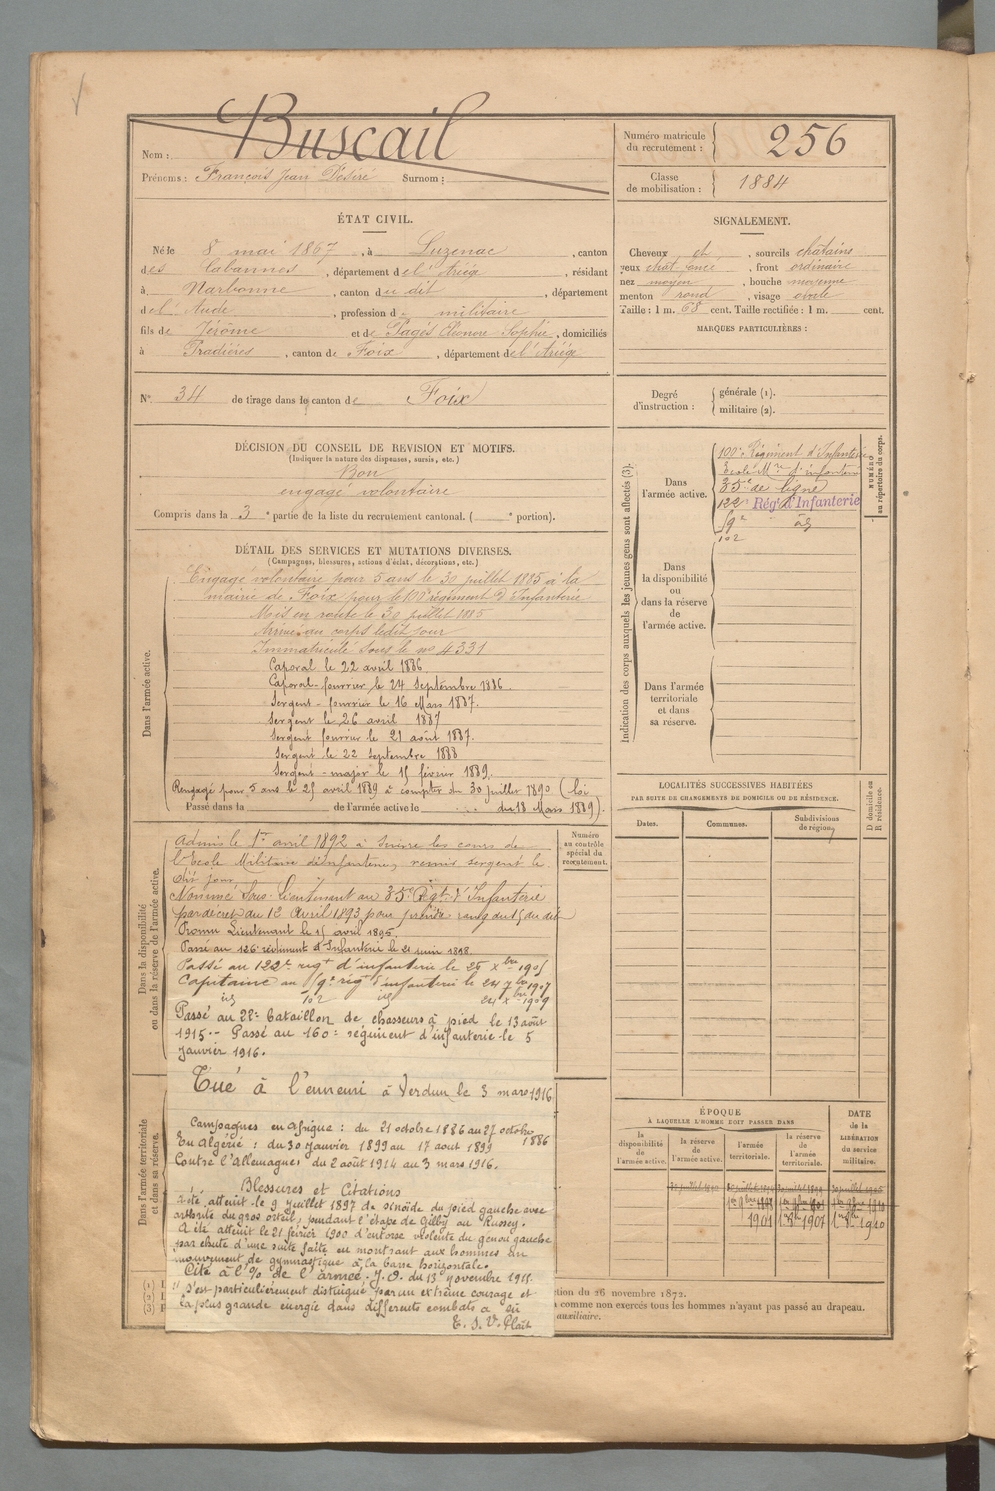 Nom : Buscail
Prénoms : François Jean Désiré Surnom :
Numéro matricule du recrutement : 256
Classe de mobilisation : 1884
ÉTAT CIVIL.
Né le 8 mai 1867, à Luzenac, canton
des Cabannes, département de l'Ariège, résidant
à Narbonne, canton du dit, département
de l'Aude, profession de militaire
fils de Jérôme et de Pagés Eléonore Sophie, domiciliés
à Pradières, canton de Foix, département de l'Ariège
SIGNALEMENT.
Cheveux et, sourcils chatains
yeux chat foncé, front ordinaire
nez moyen, bouche moyenne
menton rond, visage ovale
Taille : 1 m. 68 cent. Taille rectifiée : 1 m. cent.
MARQUES PARTICULIÈRES :
N° 34 de tirage dans le canton de Foix
Degré d'instruction : générale (1).
militaire (2).
DÉCISION DU CONSEIL DE REVISION ET MOTIFS.
(Indiquer la nature des dispenses, sursis, etc.)
Bon
engagé volontaire
Compris dans la 3e partie de la liste du recrutement cantonal. ( e portion).
Indication des corps auxquels les jeunes gens sont affectés (3).
Dans l'armée active.
100e Régiment d'Infanterie
Ecole Mre d'infanterie
35e de ligne
122e Régt d'Infanterie
59e
102
NUMÉRO au répertoire du corps.
Dans la disponibilité ou dans la réserve de l'armée active.
Dans l'armée territoriale et dans sa réserve.
DÉTAIL DES SERVICES ET MUTATIONS DIVERSES.
(Campagnes, blessures, actions d'éclat, décorations, etc.)
Dans l'armée active.
Engagé volontaire pour 5 ans le 30 juillet 1885 à la
mairie de Foix pour le 100e régiment d'Infanterie
Mis en route le 30 juillet 1885
Arrivé au corps ledit jour
Immatriculé sous le no 4331
Caporal le 22 avril 1886
Caporal-fourrier le 24 Septembre 1886.
Sergent-fourrier le 16 Mars 1887.
Sergent le 26 avril 1887
Sergent fourrier le 21 août 1887.
Sergent le 22 septembre 1888
Sergent-major le 15 février 1889.
Rengagé pour 5 ans le 25 avril 1889 à compter du 30 juillet 1890 (loi
Passé dans la de l'armée active le du 18 Mars 1889).
LOCALITÉS SUCCESSIVES HABITÉES
PAR SUITE DE CHANGEMENTS DE DOMICILE OU DE RÉSIDENCE.
Dates. Communes. Subdivisions de région.
D domicile ou R résidence.
Numéro au contrôle spécial du recrutement.
Dans la disponibilité ou dans la réserve de l'armée active.
Admis le 1er avril 1892 à suivre les cours de
l'Ecole Militaire d'infanterie, remis sergent le
dit jour
Nommé Sous-Lieutenant au 35e Régt d'Infanterie
par décret du 12 Avril 1893 pour prendre rang du 15 du dit
Promu Lieutenant le 15 avril 1895.
Passé au 126e régiment d'Infanterie le 21 juin 1898.
Passé au 122e régt d'infanterie le 25 xbre 1905
Capitaine au 59e régt d'infanterie le 24 7bre 1907
id 102 id 24 xbre 1909
Passé au 22e bataillon de chasseurs à pied le 13 août
1915.- Passé au 160e régiment d'infanterie le 5
janvier 1916.
Tué à l'ennemi à Verdun le 3 mars 1916
Dans l'armée territoriale et dans sa réserve.
Campagnes en Afrique : du 21 octobre 1886 au 27 octobre 1886
En Algérie : du 30 janvier 1899 au 17 août 1899
Contre l'Allemagne : du 2 août 1914 au 3 mars 1916.
Blessures et Citations
A été atteint le 9 juillet 1897 de sinoïde du pied gauche avec
arthrite du gros orteil, pendant l'étape de Gilby au Russey.
A été atteint le 21 février 1900 d'entorse violente du genou gauche
par chute d'une suite faite en montrant aux hommes un
mouvement de gymnastique à la barre horizontale.
Cité à l'% de l'armée. J.O. du 13 novembre 1915.
"S'est particulièrement distingué par un extrême courage et
la plus grande énergie dans différents combats a eu
ÉPOQUE
À LAQUELLE L'HOMME DOIT PASSER DANS
la disponibilité de l'armée active.
la réserve de l'armée active.
l'armée territoriale.
la réserve de l'armée territoriale.
DATE de la LIBÉRATION du service militaire.
1901 1907 1910
(1)
(2)
(3)
ction du 26 novembre 1872.
comme non exercés tous les hommes n'ayant pas passé au drapeau.
auxiliaire.